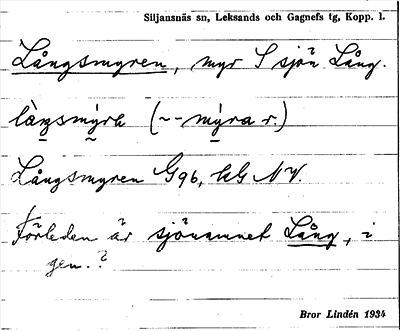 Siljansnäs sn, Leksands och Gagnefs tg, Kopp. l.
Långsmyren, myr S sjön Lång.
làŋsmýrɐ (~- mýra r.)
Långsmyren G96, hG NV.
Förleden är sjönamnet Lång, i
gen.?
Bror Lindén 1934